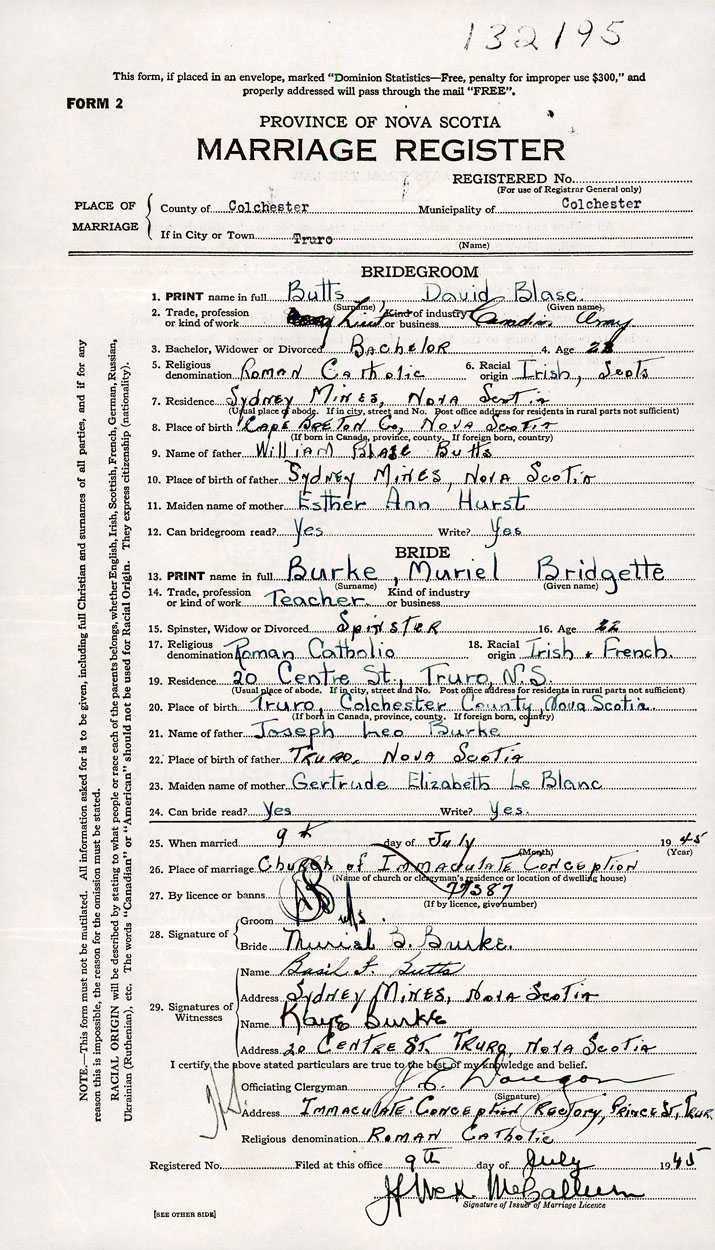 132195
This form, if placed in an envelope, marked "Dominion Statistics—Free, penalty for improper use $300," and
properly addressed will pass through the mail "FREE".
FORM 2
PROVINCE OF NOVA SCOTIA
MARRIAGE REGISTER
REGISTERED No.
(For use of Registrar General only)
PLACE OF MARRIAGE
County of Colchester Municipality of Colchester
If in City or Town Truro
(Name)
BRIDEGROOM
1. PRINT name in full Butts, David Blase
(Surname) (Given name)
2. Trade, profession or kind of work Lieut Kind of industry or business Army
3. Bachelor, Widower or Divorced Bachelor 4. Age
5. Religious denomination Roman Catholic 6. Racial origin Irish, Scots
7. Residence Sydney Mines, Nova Scotia
(Usual place of abode. If in city, street and No. Post office address for residents in rural parts not sufficient)
8. Place of birth Cape Breton Co, Nova Scotia
(If born in Canada, province, county. If foreign born, country)
9. Name of father William Blase Butts
10. Place of birth of father Sydney Mines, Nova Scotia
11. Maiden name of mother Esther Ann Hurst
12. Can bridegroom read? Yes Write? Yes
BRIDE
13. PRINT name in full Burke, Muriel Bridgette
(Surname) (Given name)
14. Trade, profession or kind of work Teacher. Kind of industry or business
15. Spinster, Widow or Divorced Spinster 16. Age 22
17. Religious denomination Roman Catholic 18. Racial origin Irish + French.
19. Residence 20 Centre St., Truro, N.S.
(Usual place of abode. If in city, street and No. Post office address for residents in rural parts not sufficient)
20. Place of birth Truro, Colchester County, Nova Scotia.
(If born in Canada, province, county. If foreign born, country)
21. Name of father Joseph Leo Burke
22. Place of birth of father Truro, Nova Scotia
23. Maiden name of mother Gertrude Elizabeth Le Blanc
24. Can bride read? Yes Write? Yes.
25. When married 9th day of July 1945
(Month) (Year)
26. Place of marriage Church of Immaculate Conception
(Name of church or clergyman's residence or location of dwelling house)
27. By licence or banns 77387
(If by licence, give number)
28. Signature of
Groom
Bride Muriel B. Burke.
29. Signatures of Witnesses
Name Basil F. Butts
Address Sydney Mines, Nova Scotia
Name Kaye Burke
Address 20 Centre St. Truro, Nova Scotia
I certify the above stated particulars are true to the best of my knowledge and belief.
Officiating Clergyman J. E.
(Signature)
Address Immaculate Conception Rectory, Prince St, Truro
Religious denomination Roman Catholic
Registered No. Filed at this office 9th day of July 1945
McCallum
Signature of Issuer of Marriage Licence
[SEE OTHER SIDE]
NOTE.—This form must not be mutilated. All information asked for is to be given, including full Christian and surnames of all parties, and if for any
reason this is impossible, the reason for the omission must be stated.
RACIAL ORIGIN will be described by stating to what people or race each of the parents belongs, whether English, Irish, Scottish, French, German, Russian,
Ukrainian (Ruthenian), etc. The words "Canadian" or "American" should not be used for Racial Origin. They express citizenship (nationality).